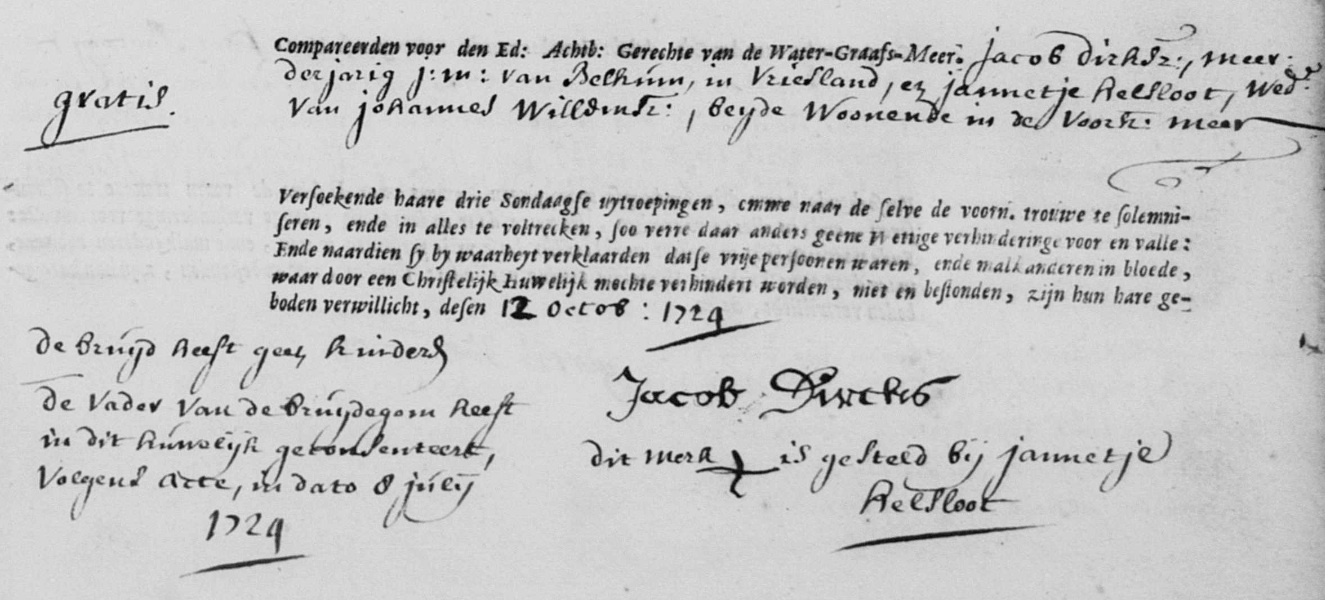 Compareerden voor den Ed: Achtb: Gerechte van de Water-Graafs-Meer. Jacob Dirksz:, meer:
derjarig j:m: van Belkum, in Vriesland, en jannetje Helsloot, Wed:
gratis.
van johannes Willemsz:, beyde Woonende in de Voorsz: meer
Versoekende haare drie Sondaagse uytroepingen, omme naar de selve de voorn. trouwe te solemni-
seren, ende in alles te voltrecken, soo verre daar anders geene Wettige verhinderinge voor en valle:
Ende naardien sy by waarheyt verklaarden datse vrije persoonen waren, ende malkanderen in bloede,
waar door een Christelijk Huwelijk mochte verhindert worden, niet en bestonden, zijn hun hare ge-
boden verwillicht, desen 12 Octob: 1724
de bruijd heeft geen kinders
de Vader van de bruijdegom heeft
in dit huwelijk geconsenteert,
volgens acte, in dato 8 julij
1724
Jacob Dirckes
dit merk is gesteld bij jannetje
Helsloot